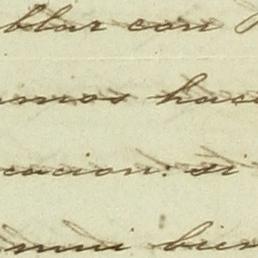 blar con
amos hasi
cacion: si
mui bien